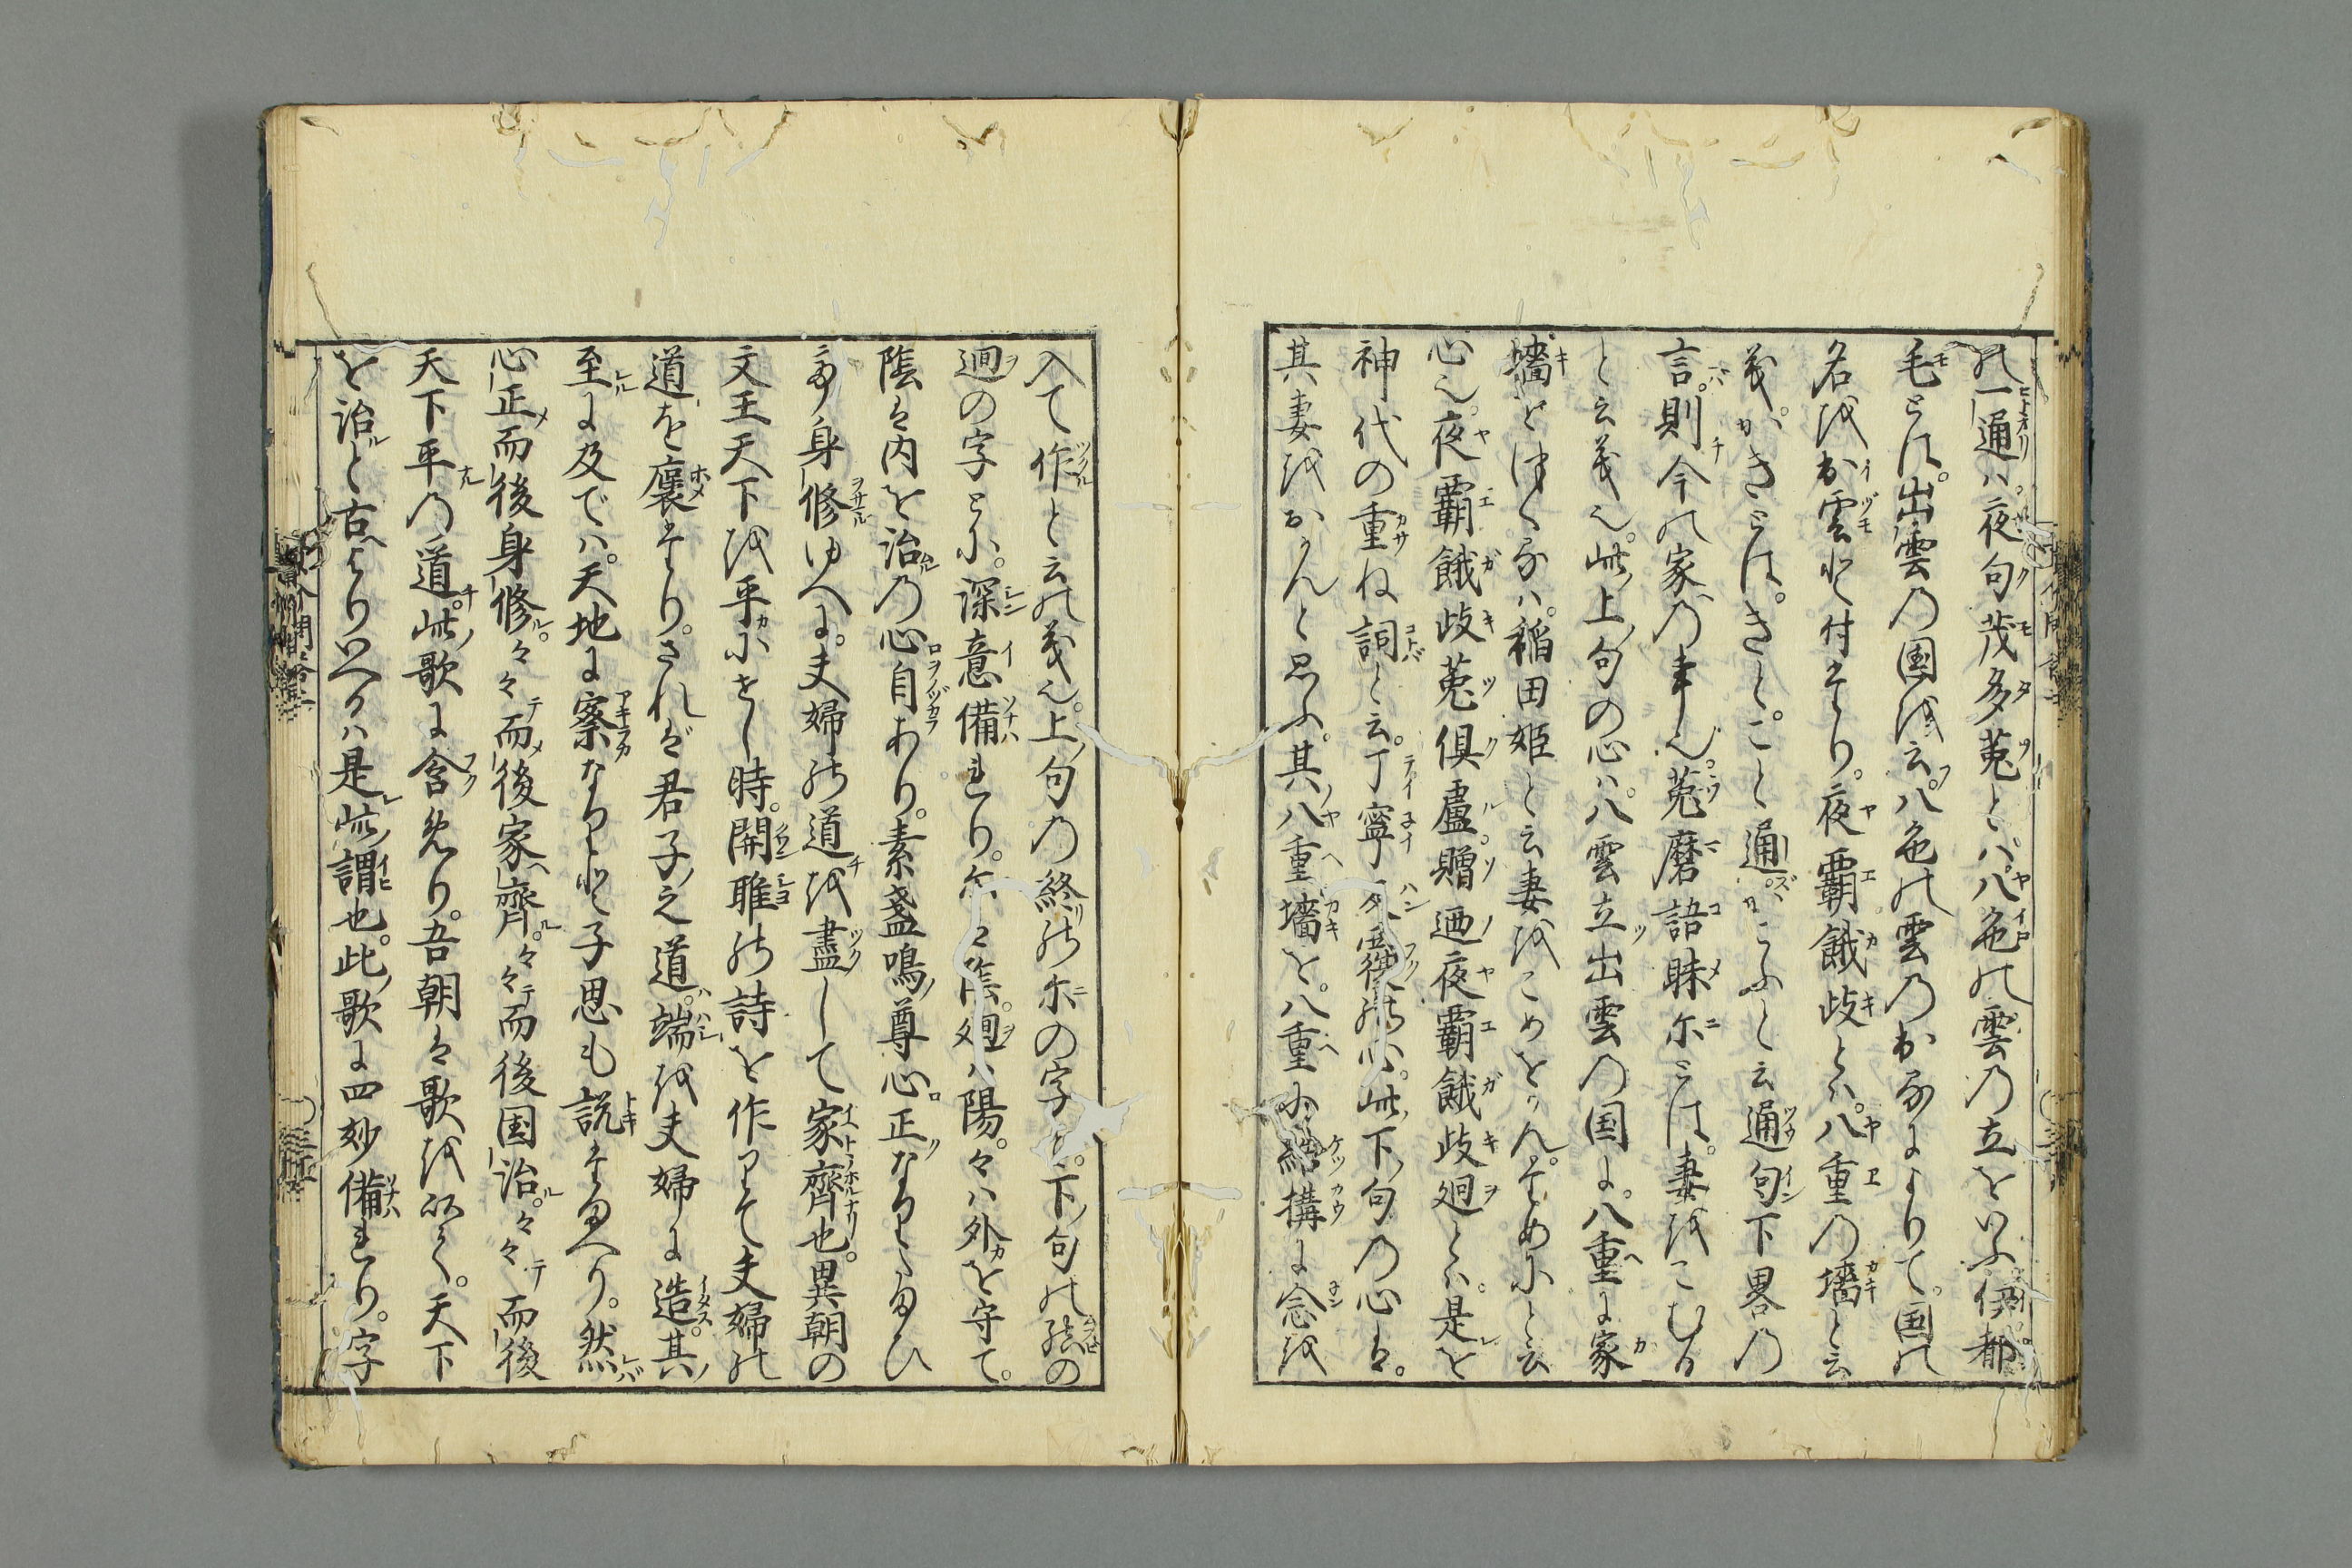 の一通ハ。夜句茂多菟とハ。八色の雲の立をいふ。伊都
毛とは。出雲の国を云。八色の雲の出るによりて。国の
名を出雲と付そめり。夜覇餓岐とハ。八重の墻と云
義。がきとは。きと。こと通ず。がこふと云通句下畧の
言。則今の家の事也。菟磨語昧尓とは。妻をこむる
と云義也。此上句の心ハ。八雲立出雲の国に。八重に家
墻をつくるハ。稲田姫と云妻をこめをかんためにと云
心也。夜覇餓岐菟倶盧贈廼夜覇餓岐廻とハ。是を
神代の重ね詞と云。丁寧反覆の心。此下句の心は。
其妻をおかんと思ふ。其八重墻を。八重に結構に念を
入て作と云の義也。上句の終の尓の字と。下句の結の
廻の字とに。深意備れり。尓は陰。廻ハ陽。々ハ外を守て。
陰は内を治の心自あり。素盞鳴尊心正なりたまひ
て身修ゆへに。夫婦の道を盡して家齊也。異朝の
文王天下を平にせし時。関雎の詩を作りて夫婦の
道を褒たり。されば君子之道。端を夫婦に造。其
至に及では。天地に察なりと子思も説たまへり。然
心正而後身修。々々而後家齊。々々而後国治。々々而後
天下平の道。此歌に含めり。吾朝は歌を以て。天下
を治と古よりいへるハ是此謂也。此歌に四妙備れり。字